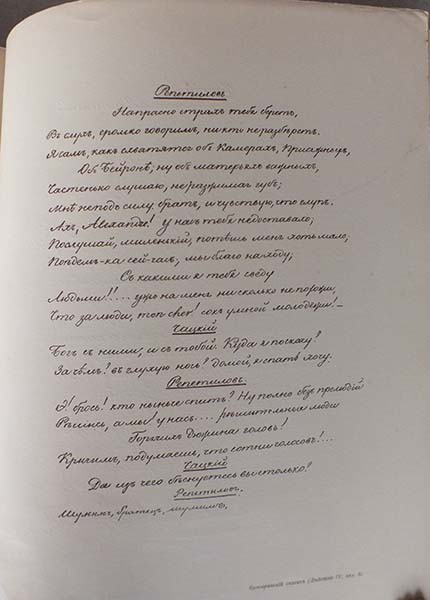 Репетиловъ
Напрасно страхъ тебя беретъ,
Въ слухъ, громко говоримъ, никто не разберетъ.
Я самъ, какъ схватятся объ Камерахъ, Присяжныхъ,
Объ Бейронѣ; ну объ матерьяхъ важныхъ,
Частенько слушаю, не разжимая губъ;
Мнѣ не подъ силу братъ, и чувствую, что глупъ.
Ахъ, Alexandre! у насъ тебя недоставало;
Послушай, миленькій, потѣшь меня хоть мало,
Поѣдемъ-ка сей-часъ, мы благо на ходу;
Съ какими я тебя сведу
Людьми!!... ужъ на меня нисколько не похожи,
Что за люди, mon cher! сокъ умной молодежи! —
Чацкій
Богъ съ ними, и съ тобой. Куда я поскачу?
За чѣмъ? въ глухую ночь? домой, я спать хочу.
Репетиловъ.
Э! брось! кто нынче спитъ? Ну полно безъ прелюдій
Рѣшись, а мы! у насъ.... рѣшительные люди
Горячихъ дюжина головъ!
Кричимъ, подумаешь, что сотни голосовъ!...
Чацкій
Да изъ чего бѣснуетесь вы столько?
Репетиловъ.
Шумимъ, братецъ, шумимъ,
Булгаринскій списокъ (Дѣйствіе IV, явл. 4)